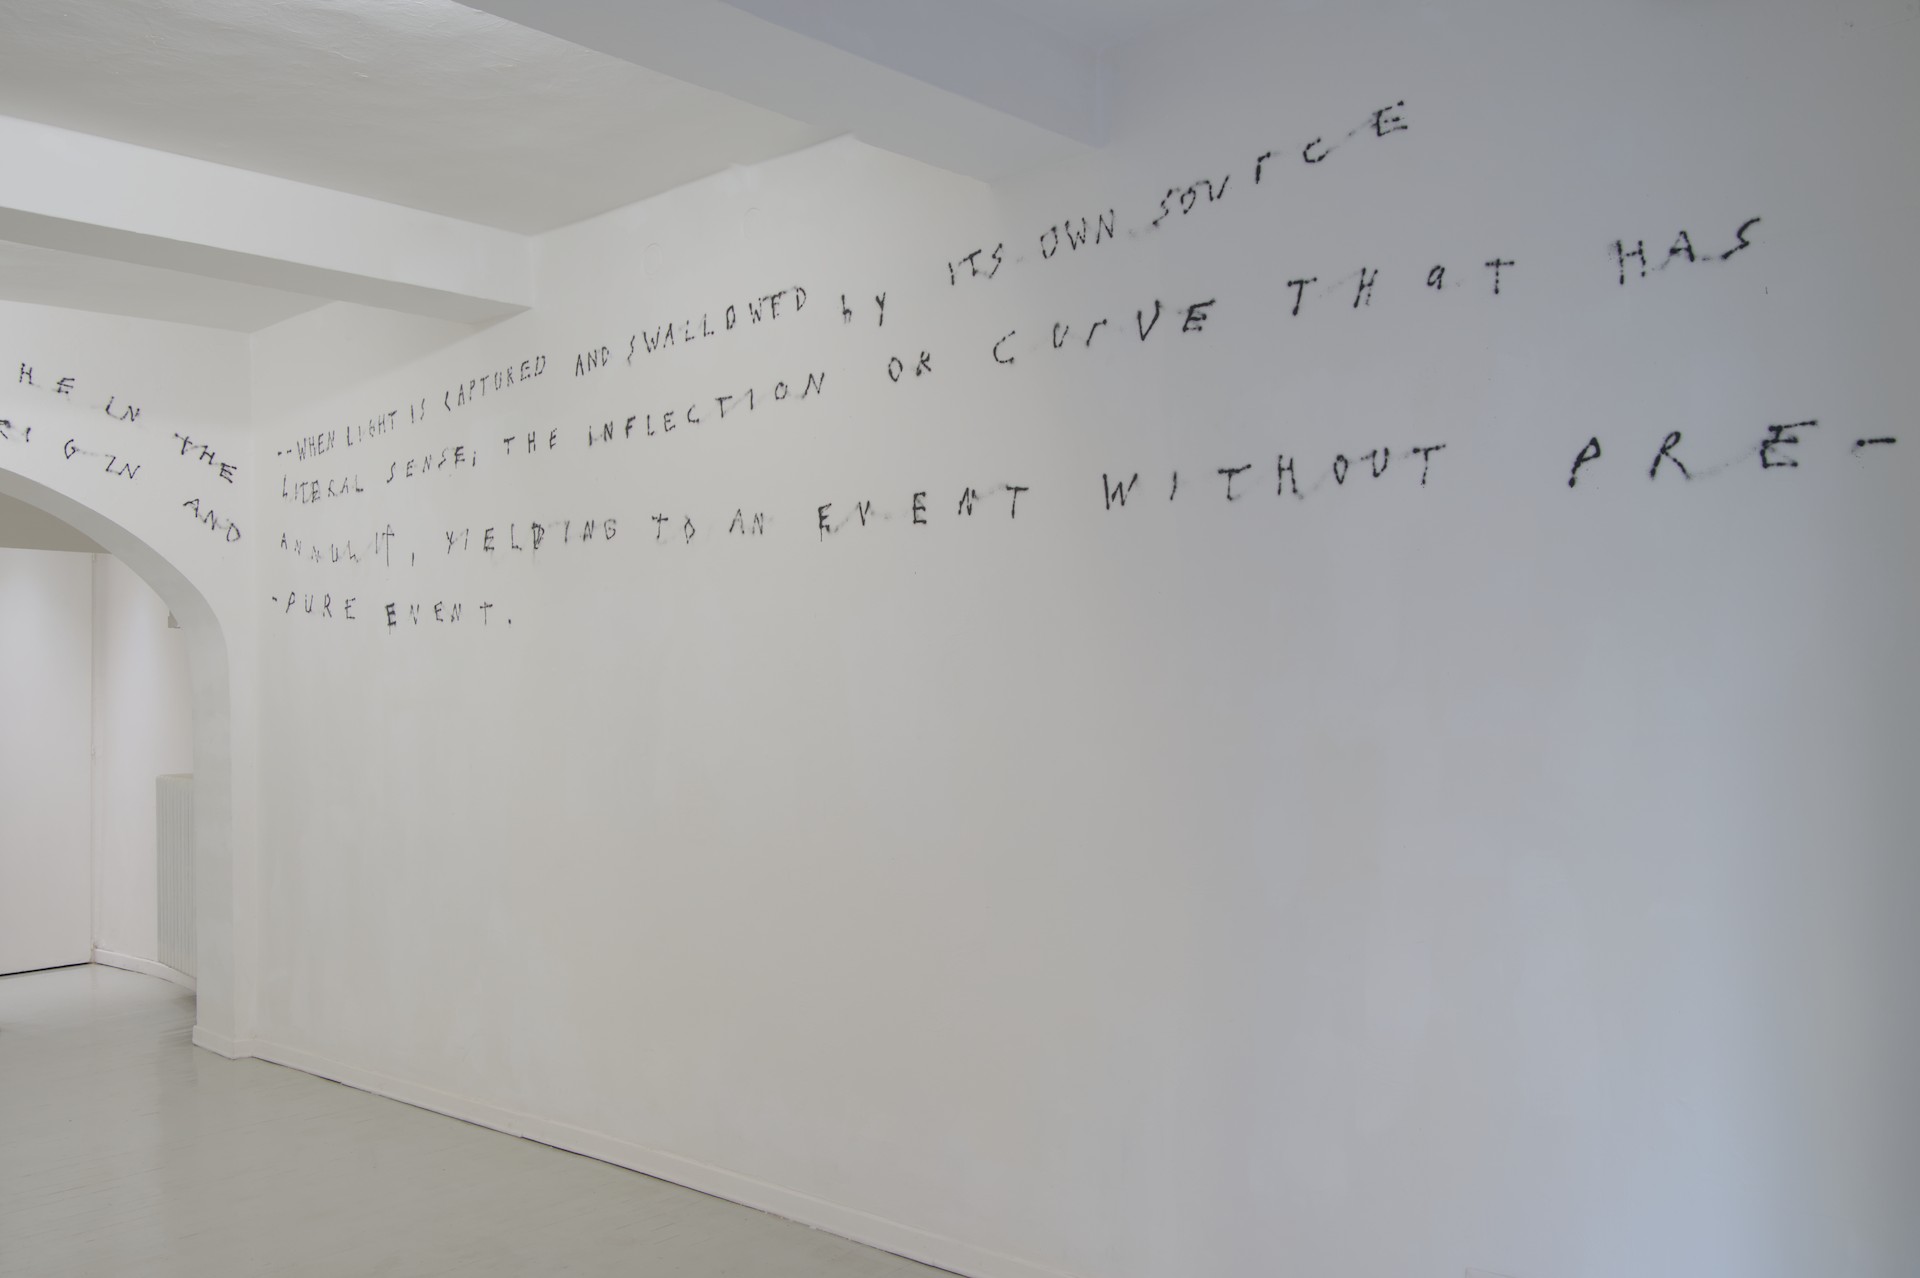 HE IN THE
RIGIN AND
--WHEN LIGHT IS CAPTURED AND SWALLOWED by ITS OWN SOUrCE
LITERAL SENSE; THE INFLECTION OR CUrVE THaT HAS
ANNUL IT, YIELDING TO AN EVENT WITHOUT PRE-
-PURE EVENT.